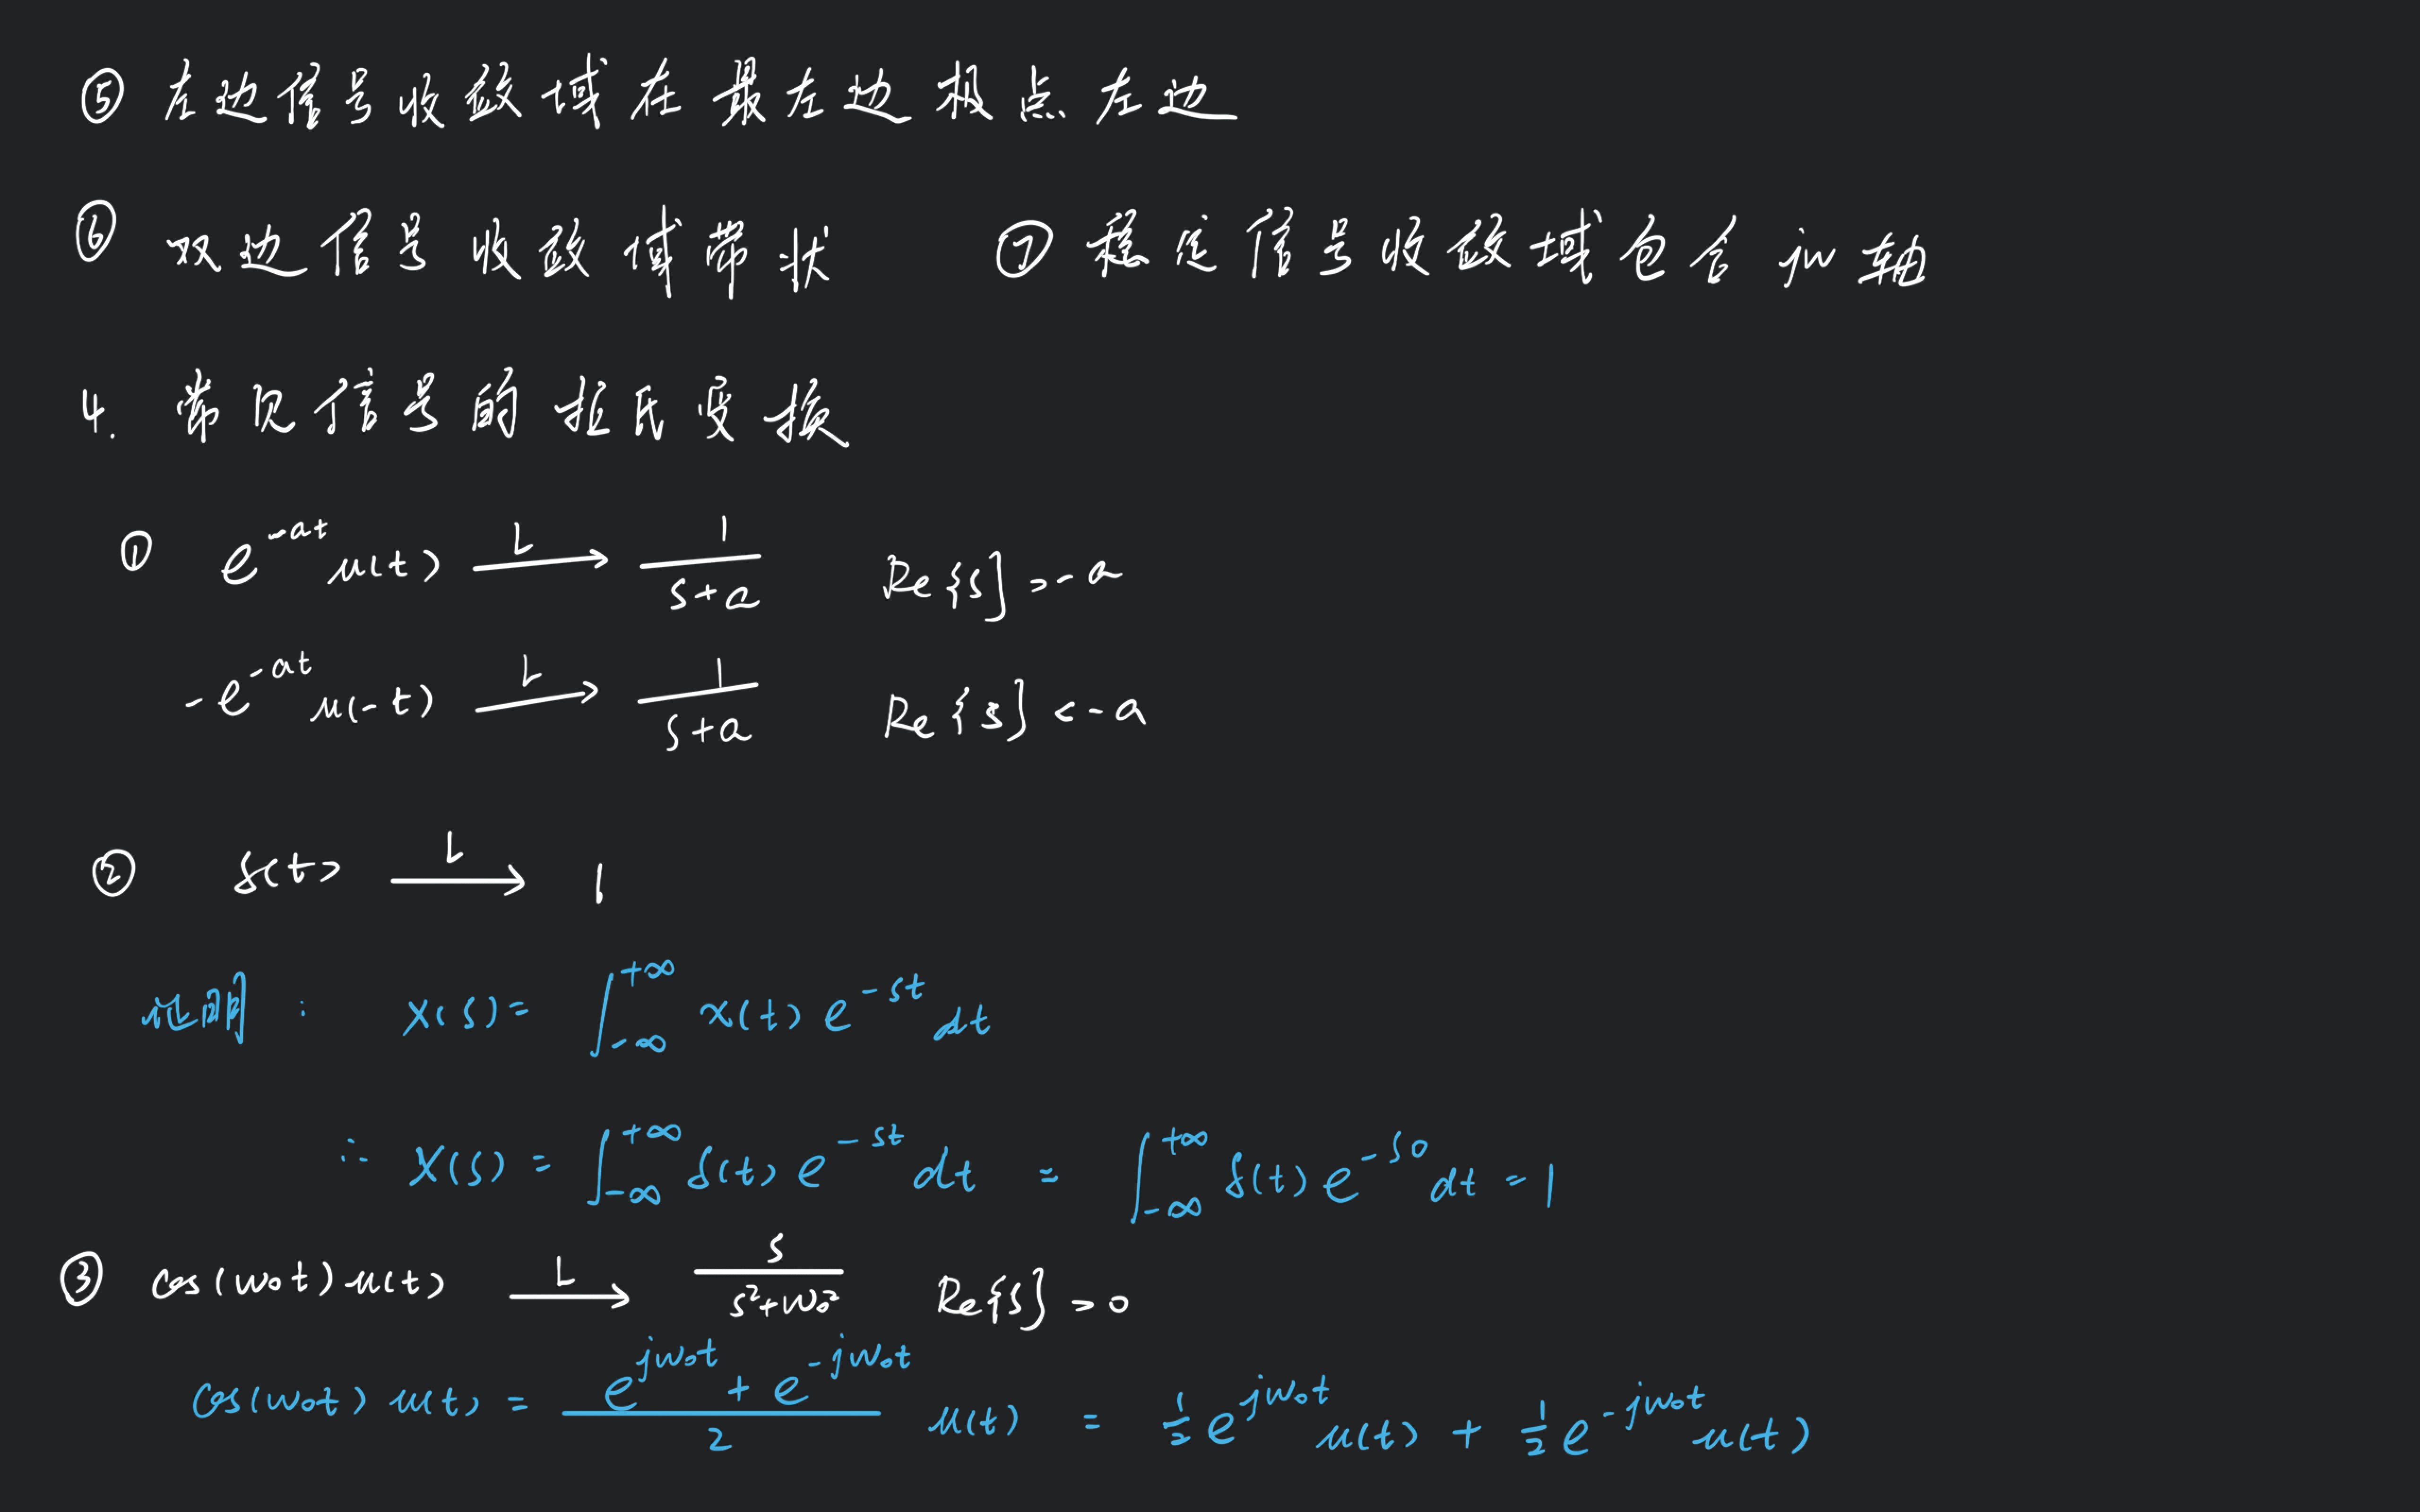 ⑤ 左边信号收敛域在最左边极点左边
⑥ 双边信号收敛域带状 ⑦ 稳定信号收敛域包含 jw 轴
4. 常见信号的拉氏变换
① e^{-at} u(t) \xrightarrow{L} \frac{1}{s+a} Re{s} > -a
-e^{-at} u(-t) \xrightarrow{L} \frac{1}{s+a} Re{s} < -a
② δ(t) \xrightarrow{L} 1
证明: X(s) = \int_{-∞}^{+∞} x(t) e^{-st} dt
∴ X(s) = \int_{-∞}^{+∞} δ(t) e^{-st} dt = \int_{-∞}^{+∞} δ(t) e^{-s0} dt = 1
③ cos(w₀t) u(t) \xrightarrow{L} \frac{s}{s²+w₀²} Re{s} > 0
cos(w₀t) u(t) = \frac{e^{jw₀t} + e^{-jw₀t}}{2} u(t) = \frac{1}{2} e^{jw₀t} u(t) + \frac{1}{2} e^{-jw₀t} u(t)